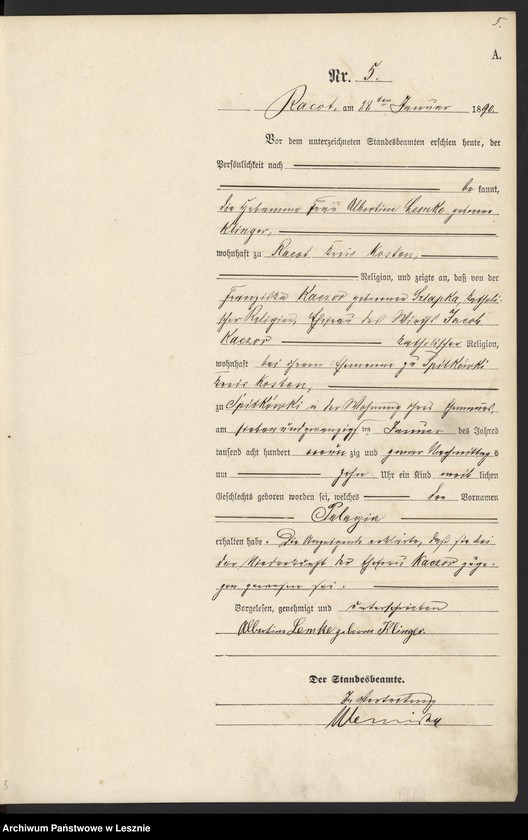 5.
A.
Nr. 5.
Racot, am 28ten Januar 1890.
Vor dem unterzeichneten Standesbeamten erschien heute, der
Persönlichkeit nach
be kannt,
die Hebamme Frau Albertine Lemke geborene
Klinger,
wohnhaft zu Racot Kreis Kosten,
Religion, und zeigte an, daß von der
Franziska Kaczor geborenen Szlapka, katholi-
scher Religion, Ehefrau des Wirths Jacob
Kaczor katholischer Religion,
wohnhaft bei ihrem Ehemanne zu Spitkówki
Kreis Kosten,
zu Spitkówki in der Wohnung ihres Ehemanns,
am siebenundzwanzigsten Januar des Jahres
tausend acht hundert neun zig und zwar Nachmittags
um zehn Uhr ein Kind weib lichen
Geschlechts geboren worden sei, welches den Vornamen
Pelagia
erhalten habe. Die Anzeigende erklärte, daß sie bei
der Niederkunft der Ehefrau Kaczor zuge-
gen gewesen sei.
Vorgelesen, genehmigt und unterschrieben
Albertine Lemke geborene Klinger.
Der Standesbeamte.
In Vertretung
5
Archiwum Państwowe w Lesznie